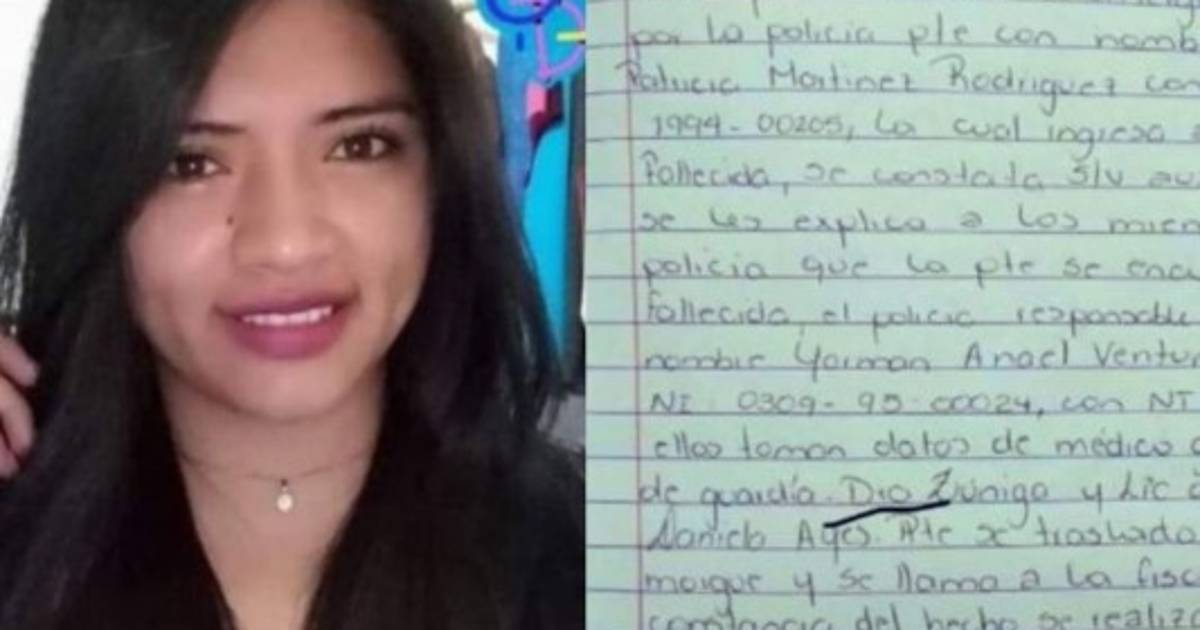 por la policia pte con nomb
Patricia Martinez Rodriguez con
1994-00205, la cual ingresa
Fallecida, se constata S/V au
se les explica a los miem
policia que la pte se encu
fallecida, el policia responsable
nombre Yorman Anael Ventu
NI 0309-95-00024, con NI
ellos toman datos de médico
de guardia. Dra Zuniga y Lic
se traslada
morgue y se llama a la fisc
constancia del hecho se realiz